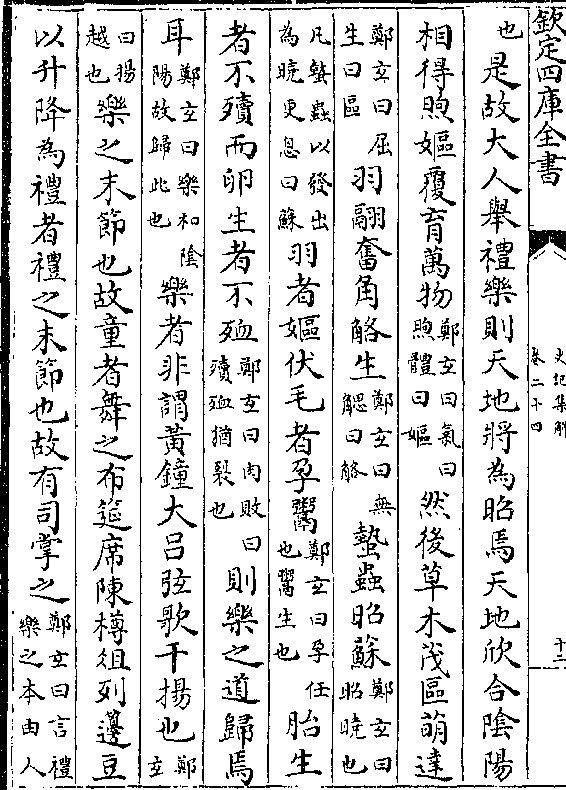 欽定四庫全書
史記集解
卷二十四
十二
也是故大人舉禮樂則天地將為昭焉天地欣合陰陽
相得煦嫗覆育萬物鄭玄曰氣曰煦體曰嫗然後草木茂區萌達
鄭玄曰屈生曰區羽翮奮角觡生鄭玄曰無䚡曰觡蟄蟲昭蘇鄭玄曰昭曉也
凡蟄蟲以發出為曉更息曰蘇羽者嫗伏毛者孕鬻鄭玄曰孕任也鬻生也胎生
者不殰而卵生者不殈鄭玄曰内敗曰殰殈猶裂也則樂之道歸焉
耳鄭玄曰樂和陰陽故歸此也樂者非謂黃鐘大呂弦歌干揚也鄭玄
曰揚越也樂之末節也故童者舞之布筵席陳樽俎列籩豆
以升降為禮者禮之末節也故有司掌之鄭玄曰言禮樂之本由人